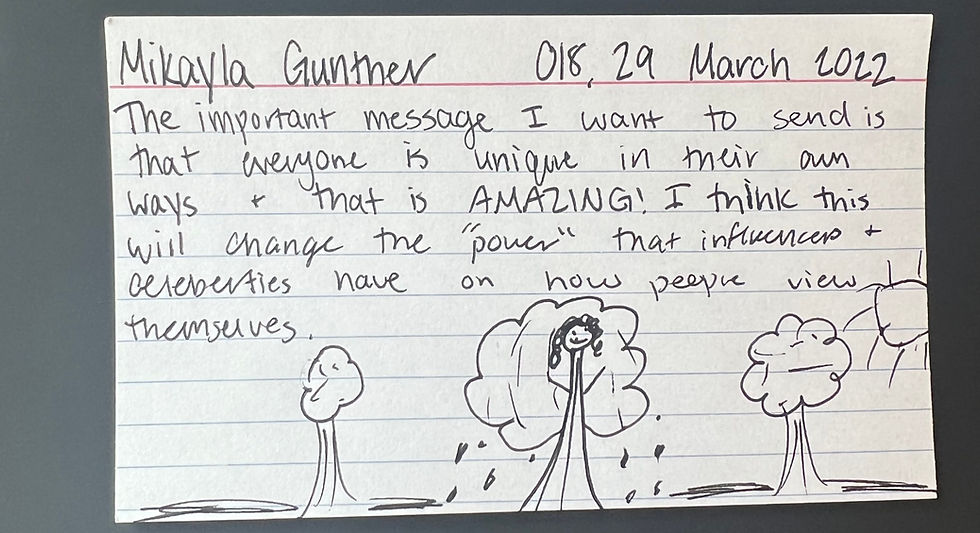 Mikayla Gunther 018, 29 March 2022
The important message I want to send is
that everyone is unique in their own
ways + that is AMAZING! I think this
will change the "power" that influencers +
celeberties have on how people view
themselves.